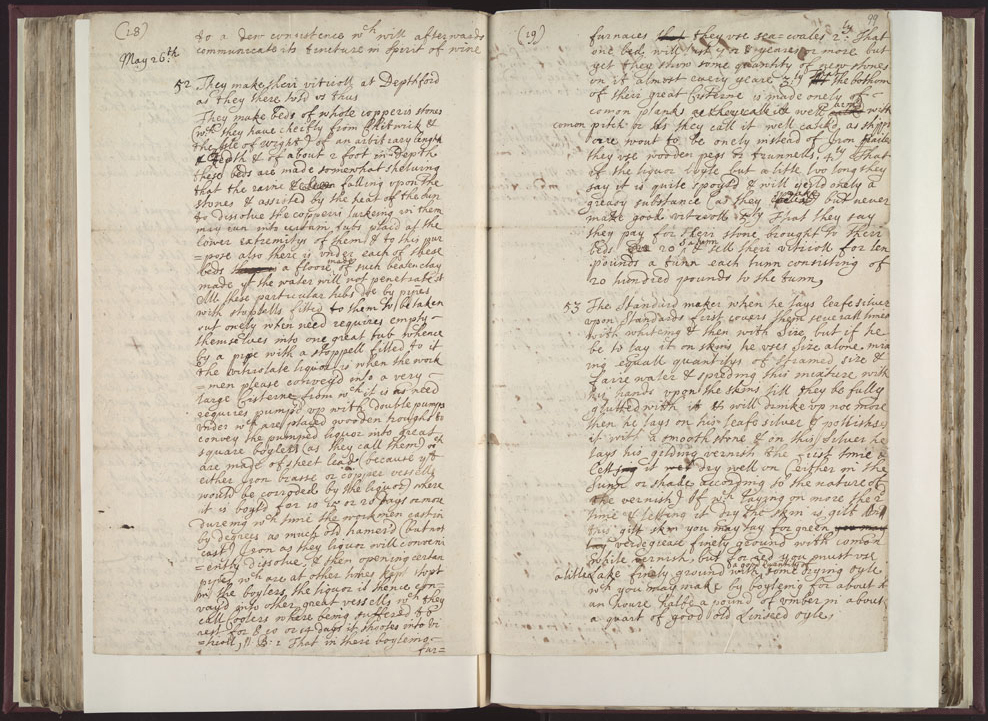 (18)
to a dew consistence wch will afterwards
communicate its tincture in spirit of wine
May 26.th
52 They make their vitrioll at Depthford
as they there told us thus
They make beds of whole copperis stones
(wch they have cheifly from &
the Isle of wight) of an arbitrary length
& of about 2 foot in Depth
these beds are made somewhat shelving
that the raine falling upon the
stones & assisted by the heat of the sun
to dissolve the copperis larking in them
may run into tubs plac'd at the
lower extremitys of them & to this pur
=pose also there is under each of these
beds a floore made of such beaten clay
made yt the water will not penetrate it
All these particular tubs doe by pipes
with stoppells fitted to them to be taken
out onely when need requires empty
themselves into one great tub whence
by a pipe with a stoppell fitted to it
the vitriolate liquor is when the work
=men please convey'd into a very
large Cisterne from wch it is as need
requires pump'd up with double pumps
under wch are placed wooden troughs to
convey the pumped liquor into great
square boylers (as they call them) wch
are made of sheet lead (because yt
either Iron brasse or copper vessells
would be corroded by the liquor) where
it is boyl'd for 10 15 or 20 days or more
dureing wch time the workmen cast in
by degrees as much old hamer'd (but not
cast) Iron as they liquor will conveni
=ently dissolve, & then opening certan
pipes wch are at other times kept stopt
in the boylers the liquor is thence con-
vay'd into other great vessells wch they
call Coolers where being suffered to
rest for 8 10 or 14 days it shootes into vi
=trioll, N B: 1 That in these boyleing
fur=
(19)
99
furnaces they use sea=coales 2ly That
one bed will last 7 or 8 yeares or more but
yet they throw some quantity of new stones
on it almost every yeare 3ly the bottom
of their great Cisterne is made onely of
comon planks as they call it well arm'd with
comon pitch or as they call it well calk'd, as shipps
are wont to be onely instead of Iron
they use wooden pegs or trunnells. 4ly That
if the liquor boyle but a little too long they
say it is quite spoyl'd & will yeild onely a
greasy substance (as they speake) but never
make good vitrioll 5ly That they say
they pay for their stone brought to their
beds 20s a tunn & sell their vitrioll for ten
pounds a tunn each tunn consisting of
20 hundred pounds to the tunn,
53 The Standard maker when he lays leafe silver
upon Standards first covers them severall times
with whiteing & then with Size, but if he
be to lay it on skins he uses Size alone mix
ing equall quantitys of strained size &
faire water & spreding this mixture with
his hands upon the skins till they be fully
glutted with it & will drinke up noe more
then he lays on his leafe silver & polishes
it with a smooth stone & on this silver he
lays his gilding vernish the first time &
letting it dry well on (either in the
sunn or shade according to the nature of
the vernish) of wch laying on more the 2d
time & letting it dry the skin is gilt
this gilt skin you may lay for green
verdegrease finely ground with comon
white vernish, but for red you must use
a little Lake finely ground with a good quantity of some drying oyle
wch you may make by boyleing for about
an houre halfe a pound of umber in about
a quart of good old Linseed oyle,